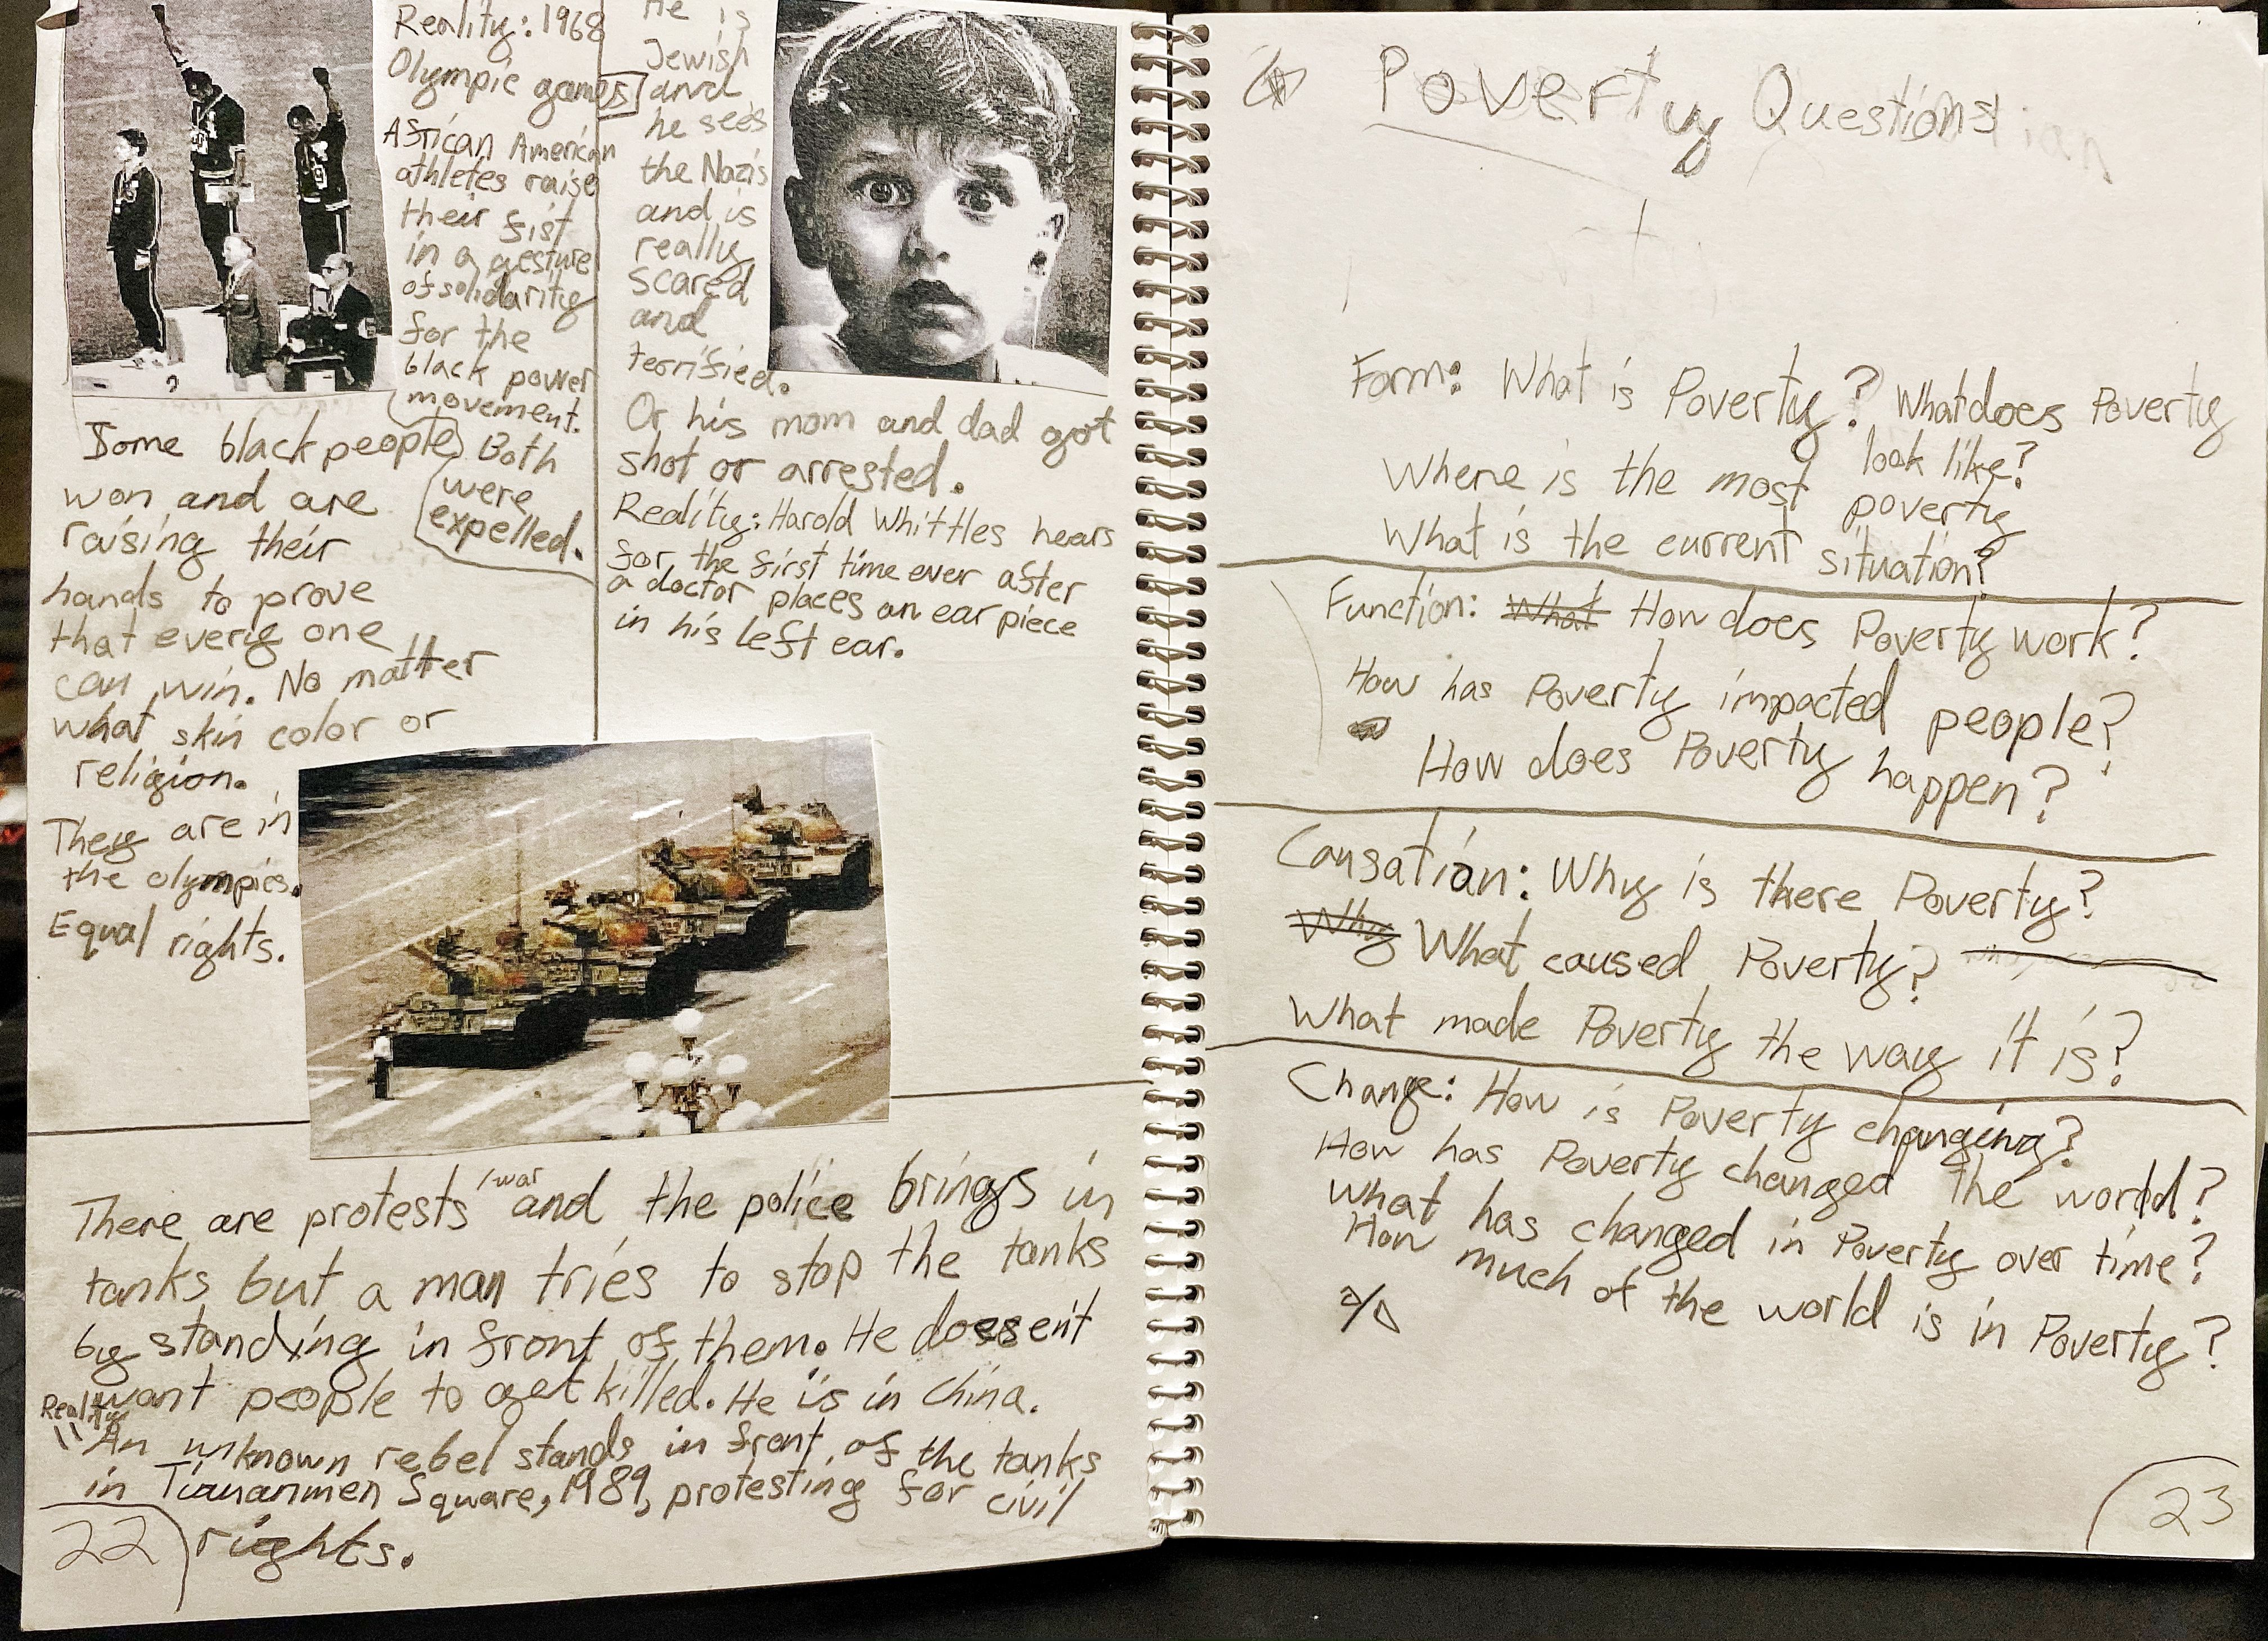 Reality: 1968
Olympic games
African American
athletes raise
their fist
in a gesture
of solidarity
for the
black power
movement.
Both
were
expelled.
Some black people
won and are
raising their
hands to prove
that every one
can win. No matter
what skin color or
religion.
They are in
the olympics.
Equal rights.
He is
Jewish
and
he sees
the Nazis
and is
really
scared
and
terrified.
Or his mom and dad got
shot or arrested.
Reality: Harold Whittles hears
for the first time ever after
a doctor places an ear piece
in his left ear.
There are protests /war and the police brings in
tanks but a man tries to stop the tanks
by standing in front of them. He doesent
want people to get killed. He is in China.
Reality
An unknown rebel stands in front of the tanks
in Tiananmen Square, 1989, protesting for civil
rights.
22
Poverty Questions
Form: What is Poverty? What does Poverty
look like?
Where is the most poverty
What is the current situation?
Function: What How does Poverty work?
How has Poverty impacted people?
How does Poverty happen?
Causation: Why is there Poverty?
Why What caused Poverty?
What made Poverty the way it is?
Change: How is Poverty changing?
How has Poverty changed the world?
What has changed in Poverty over time?
How much of the world is in Poverty?
23